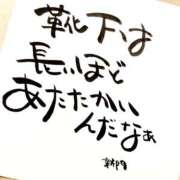 靴下は
長いほど
あたたかい
んだなぁ